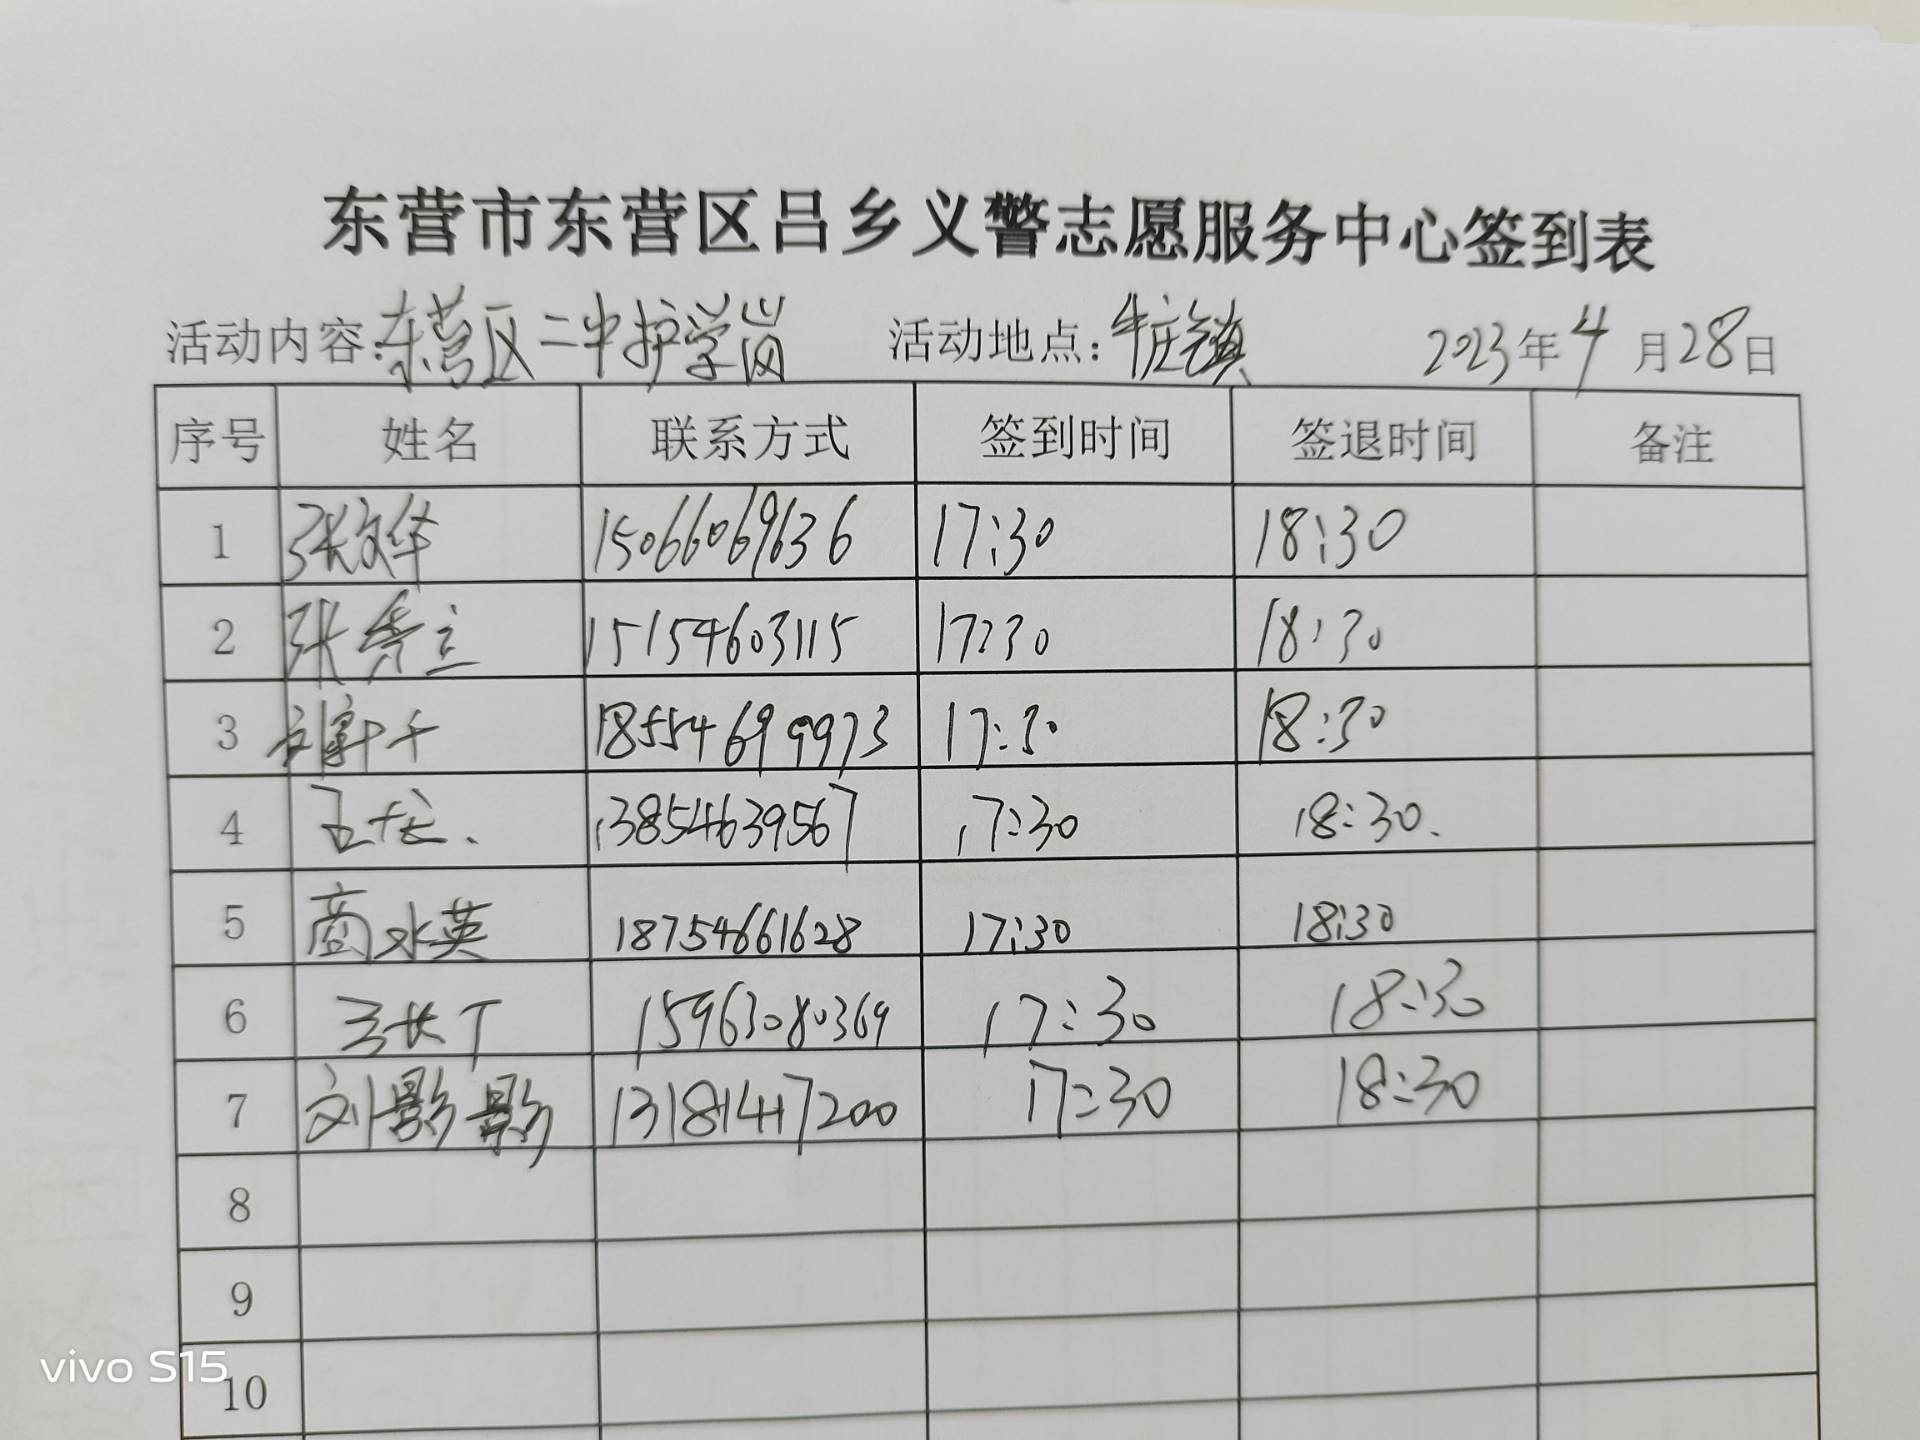 东营市东营区吕乡义警志愿服务中心签到表
活动内容:东营区二中护学岗 活动地点:牛庄镇 2023年4月28日
序号 姓名 联系方式 签到时间 签退时间 备注
1 张文华 15066069636 17:30 18:30
2 张秀立 15154603115 17:30 18:30
3 18554699973 17:30 18:30
4 13854639567 17:30 18:30.
5 商水英 18754661628 17:30 18:30
6 15963080369 17:30 18:30
7 刘影影 13181417200 17:30 18:30
8
9
10
vivo S15